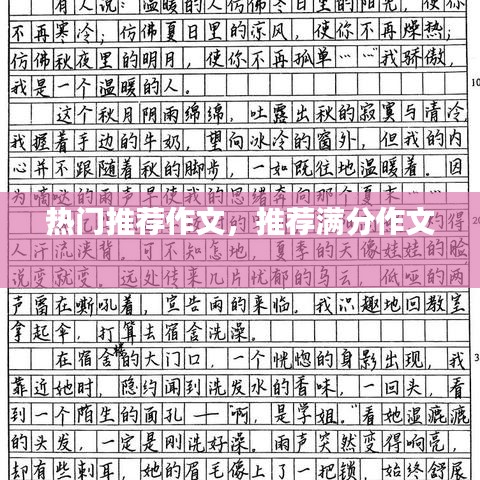 有人说:温暖的人仿佛冬日里的阳光,使你
不再寒冷;仿佛夏日里的凉风,使你不再燥热;
仿佛秋夜里的明月,使你不再孤单……我骄傲,
我是一个温暖的人。
10
这个秋月阴雨绵绵,吐露出秋的寂寞与清冷,
我握着手边的牛奶,望向冰冷的窗外,但我的内
心并不跟随着秋的脚步,一如既往地温暖着。因
为嘀哒的雨声早使我的思绪奔向那个夏末……
热门推荐作文,推荐满分作文
人汗流浃背。可不知怎地,夏季的天像娃娃的脸
说变就变。远处传来几片忧郁的乌云,低哑的两
声雷在嘶吼着,宣告雨的来临。我识趣地回教室
拿起伞,打算去宿舍洗澡。
在宿舍楼的大门口,一个恍惚的身影出现,我
靠近她时,隐约闻到洗发水的香味,一回头,看
到一个陌生的面孔——“啊,是学姐。”看她湿漉漉
的头发,一定是刚洗好澡。雨声突然变得响亮,
却有些刺耳,她的眉毛像上了一把锁,始终舒展